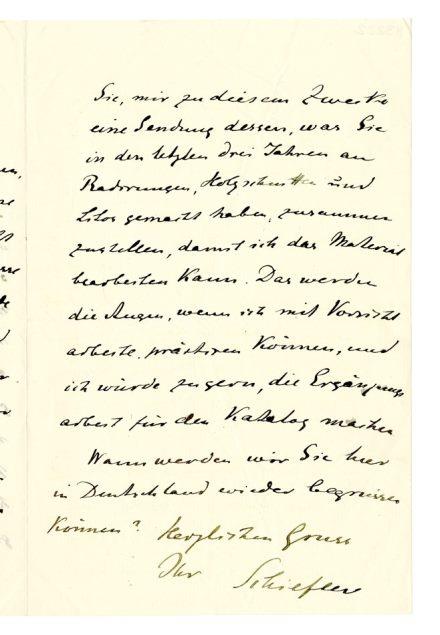 Sie, mir zu diesem Zwecke
eine Sendung dessen, was Sie
in den letzten drei Jahren an
Radirungen, Holzschnitten und
Litos gemacht haben, zusammen
zustellen, damit ich das Material
bearbeiten kann. Das werden
die Augen, wenn ich mit Vorsicht
arbeite, prästiren können, und
ich würde zu gern, die Ergänzungs
arbeit für den Katalog machen
Wann werden wir Sie hier
in Deutschland wieder begrüssen
können? Herzlichen Gruss
Ihr Schiefler